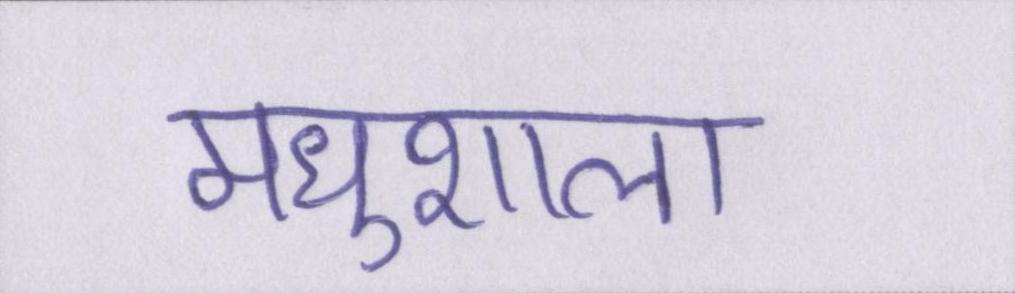 मधुशाला